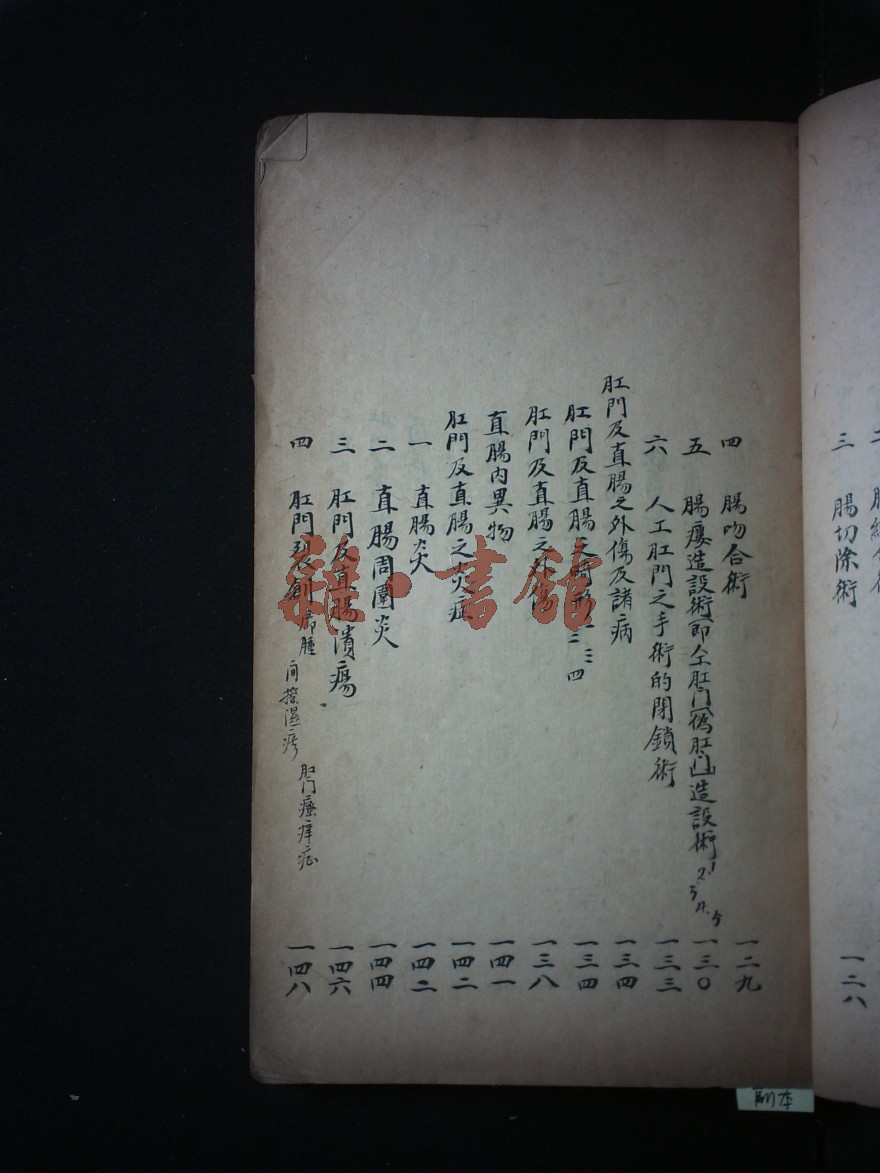 三 腸切除術 一二八
四 腸吻合術 一二九
五 腸瘻造設術(即人工肛門(偽肛門)造設術) 1 2 3 4 5 一三〇
六 人工肛門之手術的閉鎖術 一三三
肛門及直腸之外傷及諸病 一三四
肛門及直腸之畸形 一 二 三 四 一三四
肛門及直腸之外傷 一三八
直腸內異物 一四一
肛門及直腸之炎症 一四二
一 直腸炎 一四二
二 直腸周圍炎 一四四
三 肛門及直腸潰瘍 一四六
四 肛門裂創 一四八
肛門瘙痒症
雜·書館
副本